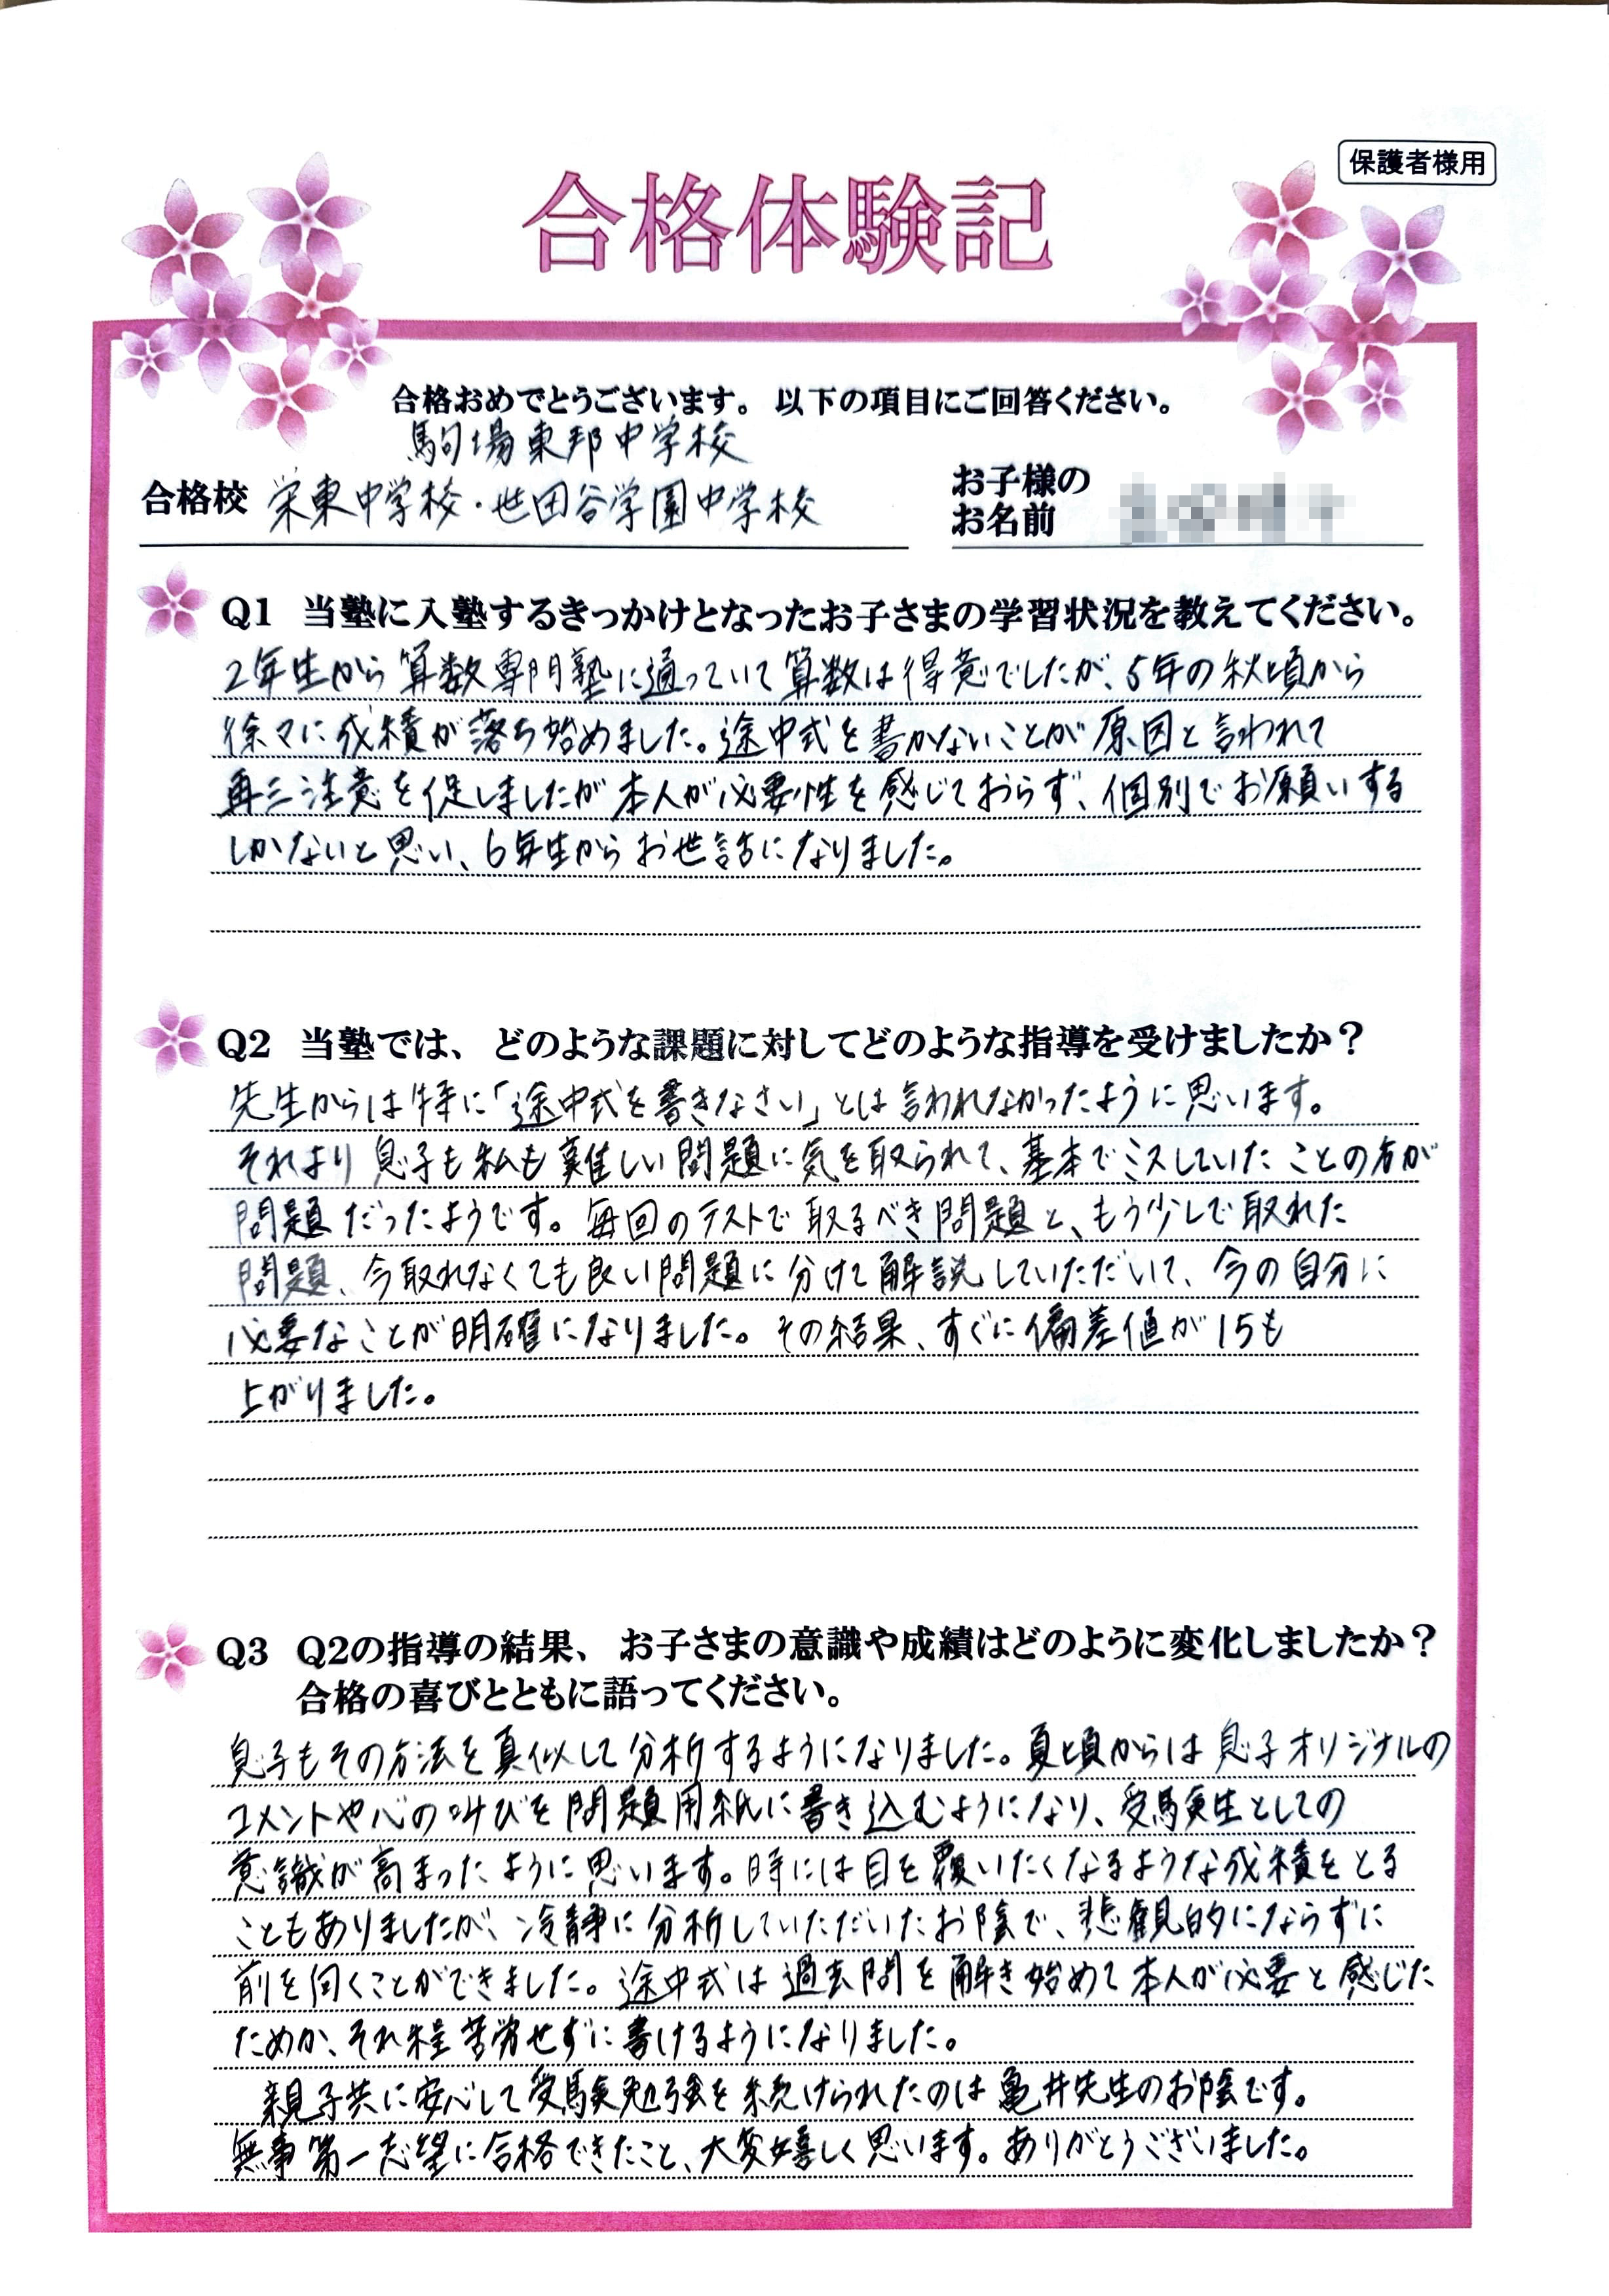 保護者様用
合格体験記
合格おめでとうございます。以下の項目にご回答ください。
駒場東邦中学校
合格校 栄東中学校・世田谷学園中学校
お子様の
お名前
Q1 当塾に入塾するきっかけとなったお子さまの学習状況を教えてください。
2年生から算数専門塾に通っていて算数は得意でしたが、5年の秋頃から
徐々に成績が落ち始めました。途中式を書かないことが原因と言われて
再三注意を促しましたが本人が必要性を感じておらず、個別でお願いする
しかないと思い、6年生からお世話になりました。
Q2 当塾では、どのような課題に対してどのような指導を受けましたか？
先生からは特に「途中式を書きなさい」とは言われなかったように思います。
それより息子も私も難しい問題に気を取られて、基本でミスしていたことの方が
問題だったようです。毎回のテストで取るべき問題と、もう少しで取れた
問題、今取れなくても良い問題に分けて解説していただいて、今の自分に
必要なことが明確になりました。その結果、すぐに偏差値が15も
上がりました。
Q3 Q2の指導の結果、お子さまの意識や成績はどのように変化しましたか？
合格の喜びとともに語ってください。
息子もその方法を真似して分析するようになりました。夏頃からは息子オリジナルの
コメントや心の叫びを問題用紙に書き込むようになり、受験生としての
意識が高まったように思います。時には目を覆いたくなるような成績をとる
こともありましたが、冷静に分析していただいたお陰で、悲観的にならずに
前を向くことができました。途中式は過去問を解き始めて本人が必要と感じた
ためか、それ程苦労せずに書けるようになりました。
親子共に安心して受験勉強を続けられたのは亀井先生のお陰です。
無事第一志望に合格できたこと、大変嬉しく思います。ありがとうございました。